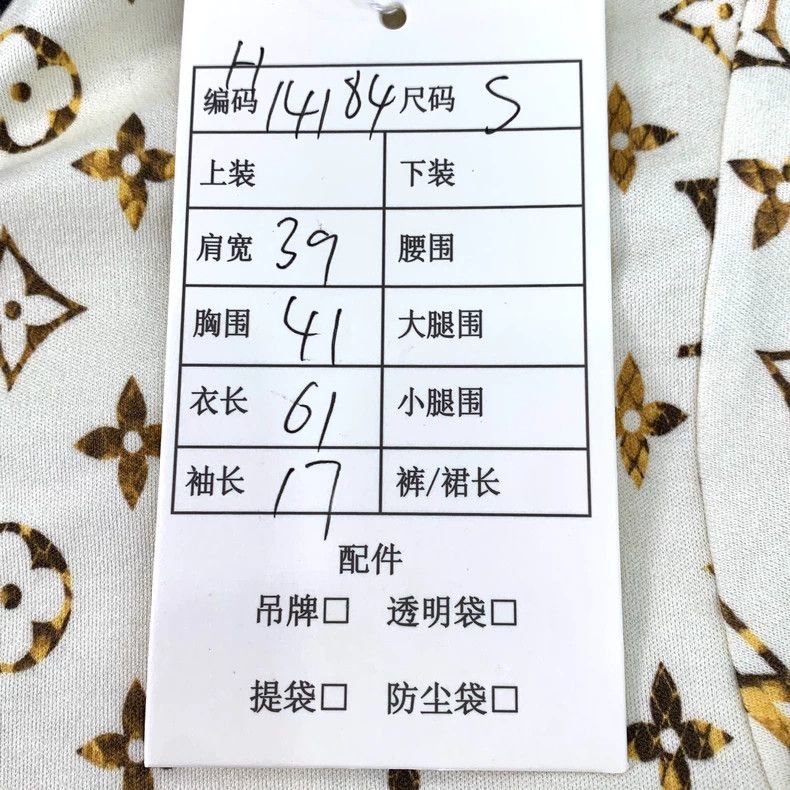 编码 H14184 尺码 S
上装 下装
肩宽 39 腰围
胸围 41 大腿围
衣长 61 小腿围
袖长 17 裤/裙长
配件
吊牌□ 透明袋□
提袋□ 防尘袋□